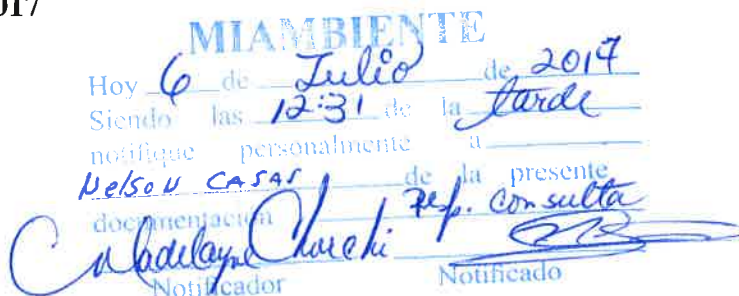 017
MIAMBIENTE
Hoy 6 de Julio de 2017
Siendo las 12:31 de la tarde
notifique personalmente a
Nelson CASAS de la presente
documentación resp. consulta
Notificador Notificado